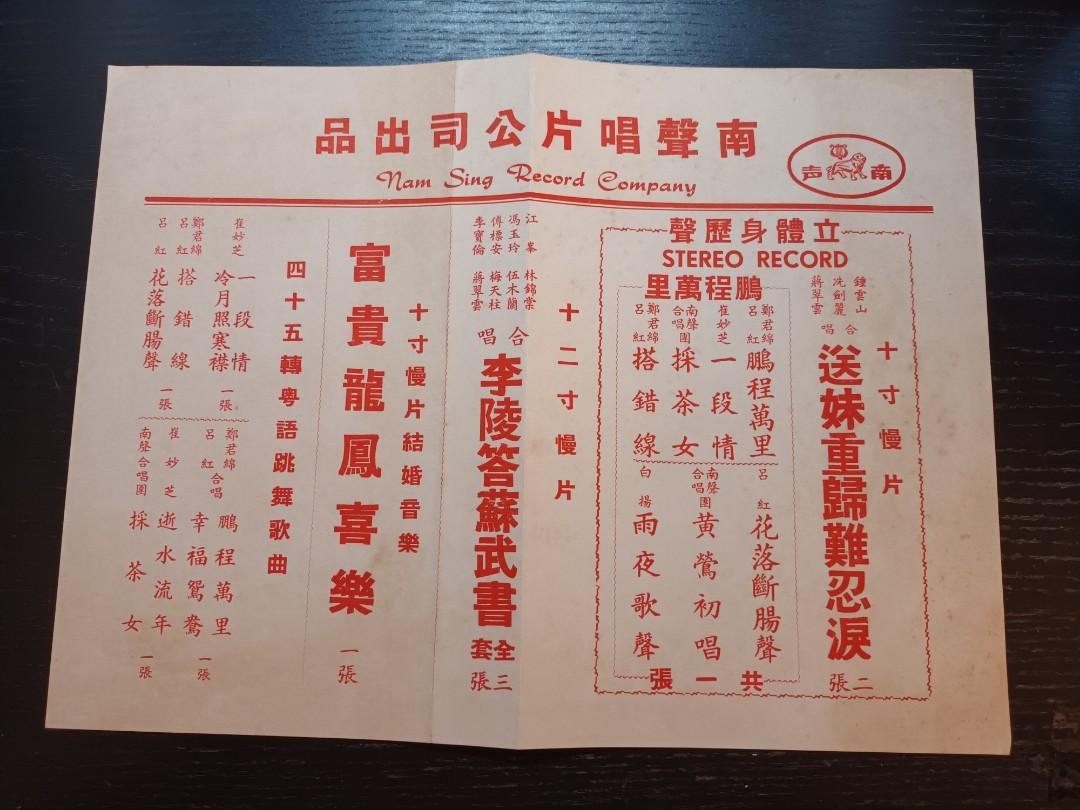 南聲唱片公司出品
Nam Sing Record Company
南声
立體身歷聲
STEREO RECORD
十寸慢片
鍾雲山
冼劍麗
蔣翠雲
合唱
送妹重歸難忍淚
二張
鵬程萬里
鄭君綿
呂紅
鵬程萬里
崔妙芝
一段情
南聲合唱團
採茶女
鄭君綿
呂紅
搭錯線
呂紅
花落斷腸聲
南聲合唱團
黃鶯初唱
白揚
雨夜歌聲
共一張
十二寸慢片
江峯
馮玉玲
傅標安
李寶倫
林錦棠
伍木蘭
梅天柱
蔣翠雲
合唱
李陵答蘇武書
全套
三張
十寸慢片結婚音樂
富貴龍鳳喜樂
一張
四十五轉粵語跳舞歌曲
崔妙芝
一段情
冷月照寒襟
一張
鄭君綿
呂紅
搭錯線
呂紅
花落斷腸聲
一張
鄭君綿
呂紅
合唱
鵬程萬里
幸福鴛鴦
一張
崔妙芝
逝水流年
南聲合唱團
採茶女
一張